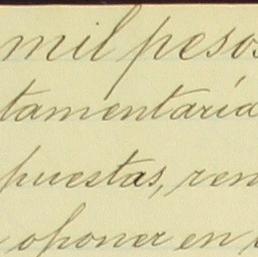 mil pesos
tamentaría
puestas, ren
oponer en